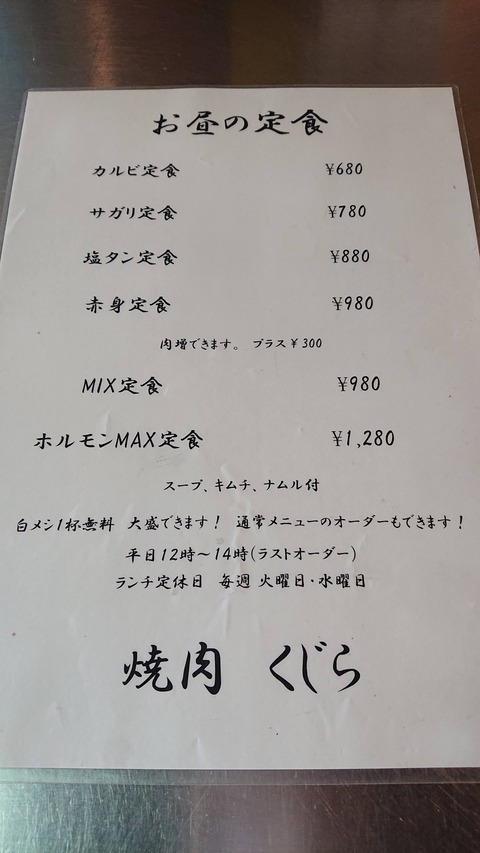 お昼の定食
カルビ定食 ¥680
サガリ定食 ¥780
塩タン定食 ¥880
赤身定食 ¥980
肉増できます。 プラス¥300
MIX定食 ¥980
ホルモンMAX定食 ¥1,280
スープ、キムチ、ナムル付
白メシ1杯無料 大盛できます! 通常メニューのオーダーもできます!
平日12時~14時(ラストオーダー)
ランチ定休日 毎週 火曜日・水曜日
焼肉 くじら